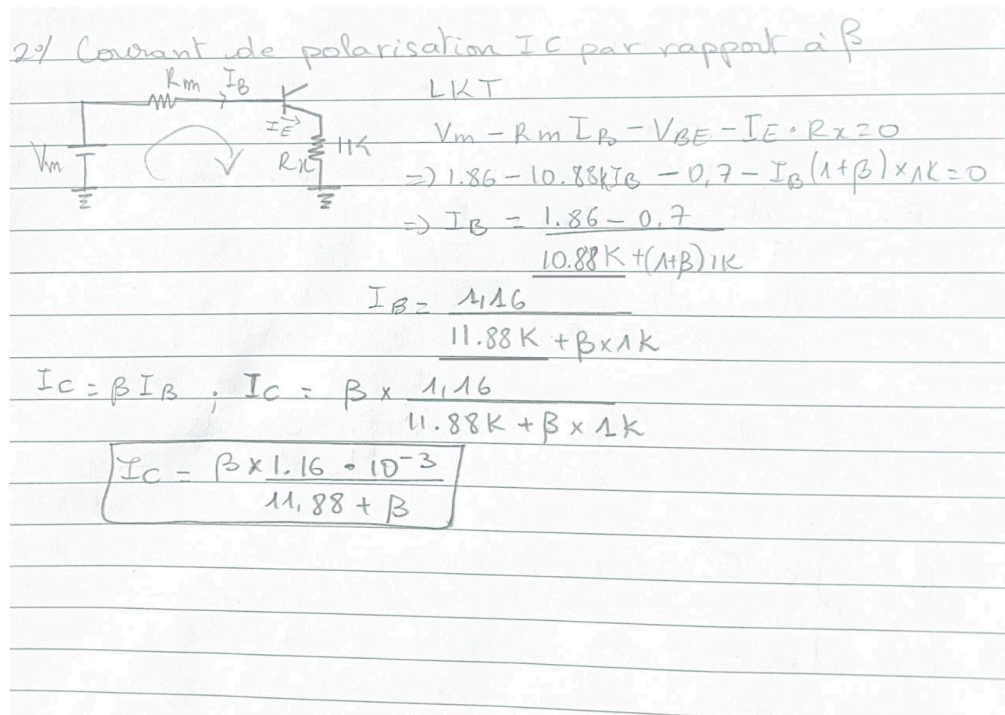 2°/ Courant de polarisation IC par rapport à β
Rm IB
LKT
Vm IE Rx 1K
Vm - Rm IB - VBE - IE . Rx = 0
=> 1.86 - 10.88K IB - 0,7 - IB (1+β) × 1K = 0
=> IB = 1.86 - 0,7
10.88K + (1+β) 1K
IB = 1,16
11.88K + β × 1K
IC = β IB ; IC = β × 1,16
11.88K + β × 1K
IC = β × 1.16 . 10-3
11,88 + β